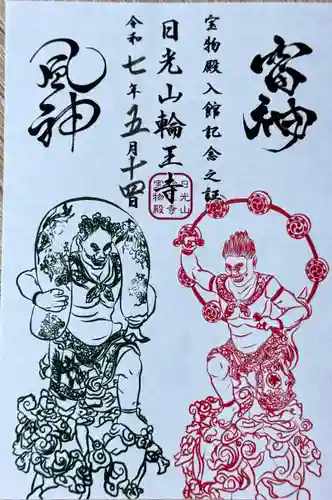 雷神
宝物殿入館記念之証
日光山輪王寺
令和七年五月十四日
風神
日光山
輪王寺
宝物殿